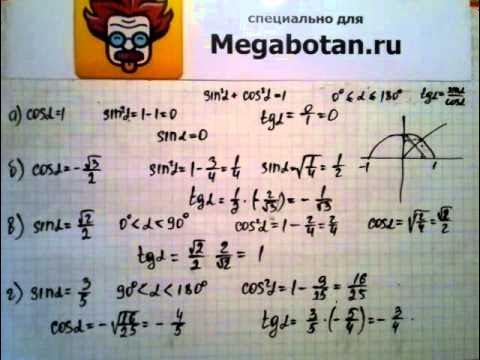 специально для
Megabotan.ru
sin²α + cos²α = 1 0° ≤ α ≤ 180° tgα = sinα/cosα
а) cosα = 1 sin²α = 1 - 1 = 0 tgα = 0/1 = 0
sinα = 0
-1 1
б) cosα = -√3/2 sin²α = 1 - 3/4 = 1/4 sinα = √1/4 = 1/2
tgα = 1/2 · (-2/√3) = -1/√3
в) sinα = √2/2 0° < α < 90° cos²α = 1 - 2/4 = 2/4 cosα = √2/4 = √2/2
tgα = √2/2 · 2/√2 = 1
г) sinα = 3/5 90° < α < 180° cos²α = 1 - 9/25 = 16/25
cosα = -√16/25 = -4/5 tgα = 3/5 · (-5/4) = -3/4